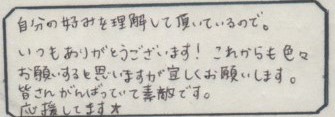 自分の好みを理解して頂いているので。
いつもありがとうございます! これからも色々
お願いすると思いますが宜しくお願いします。
皆さんがんばっていて素敵です。
応援してます★